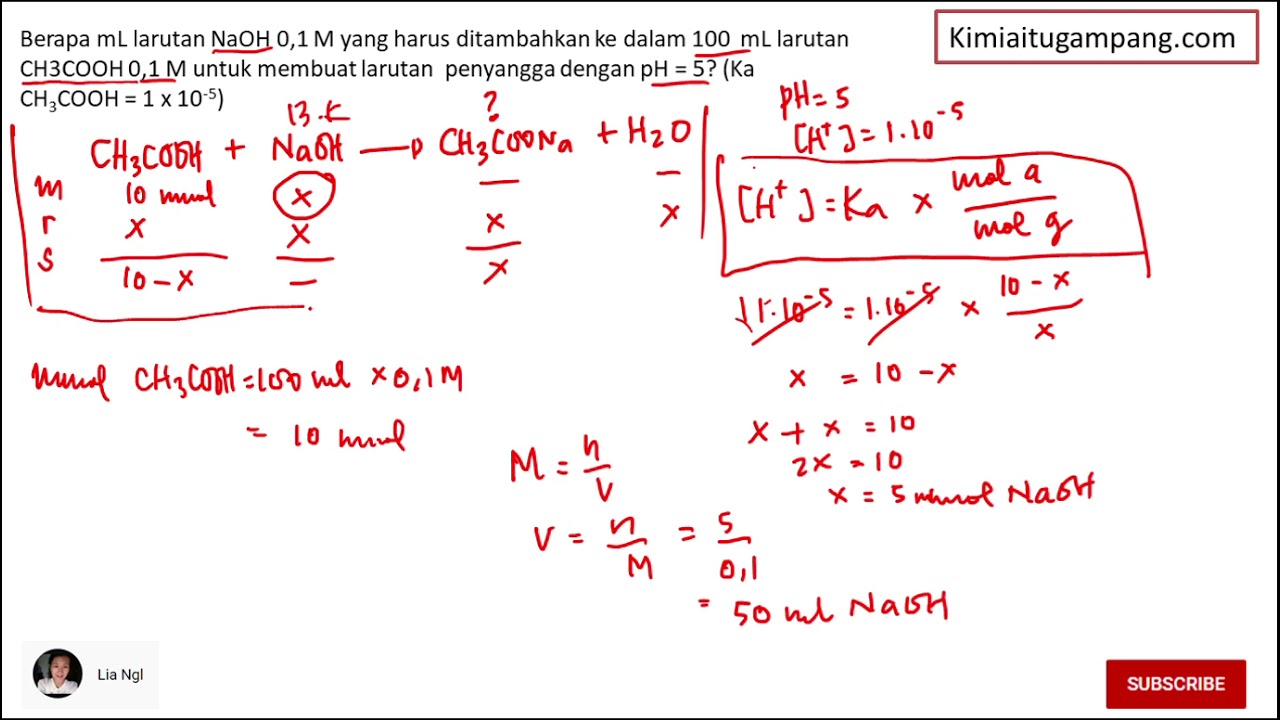 Berapa mL larutan NaOH 0,1 M yang harus ditambahkan ke dalam 100 mL larutan
CH3COOH 0,1 M untuk membuat larutan penyangga dengan pH = 5? (Ka
CH₃COOH = 1 x 10⁻⁵)
Kimiaitugampang.com
B.K ?
CH₃COOH + NaOH → CH₃COONa + H₂O
m 10 mmol x – –
r x x x x
s 10 – x – x
mmol CH₃COOH = 100 ml × 0,1 M
= 10 mmol
pH = 5
[H⁺] = 1.10⁻⁵
[H⁺] = Ka × mol a / mol g
1.10⁻⁵ = 1.10⁻⁵ × 10 – x / x
x = 10 – x
x + x = 10
2x = 10
x = 5 mmol NaOH
M = n / V
V = n / M = 5 / 0,1
= 50 ml NaOH
Lia Ngl
SUBSCRIBE